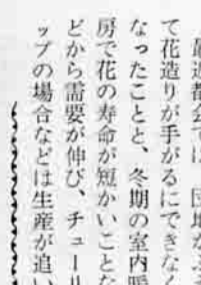 最近都会では、団地がふ
て花造りが手がるにできなく
なったことと、冬期の室内暖
房で花の寿命が短かいことな
どから需要が伸び、チューリ
ップの場合などは生産が追い